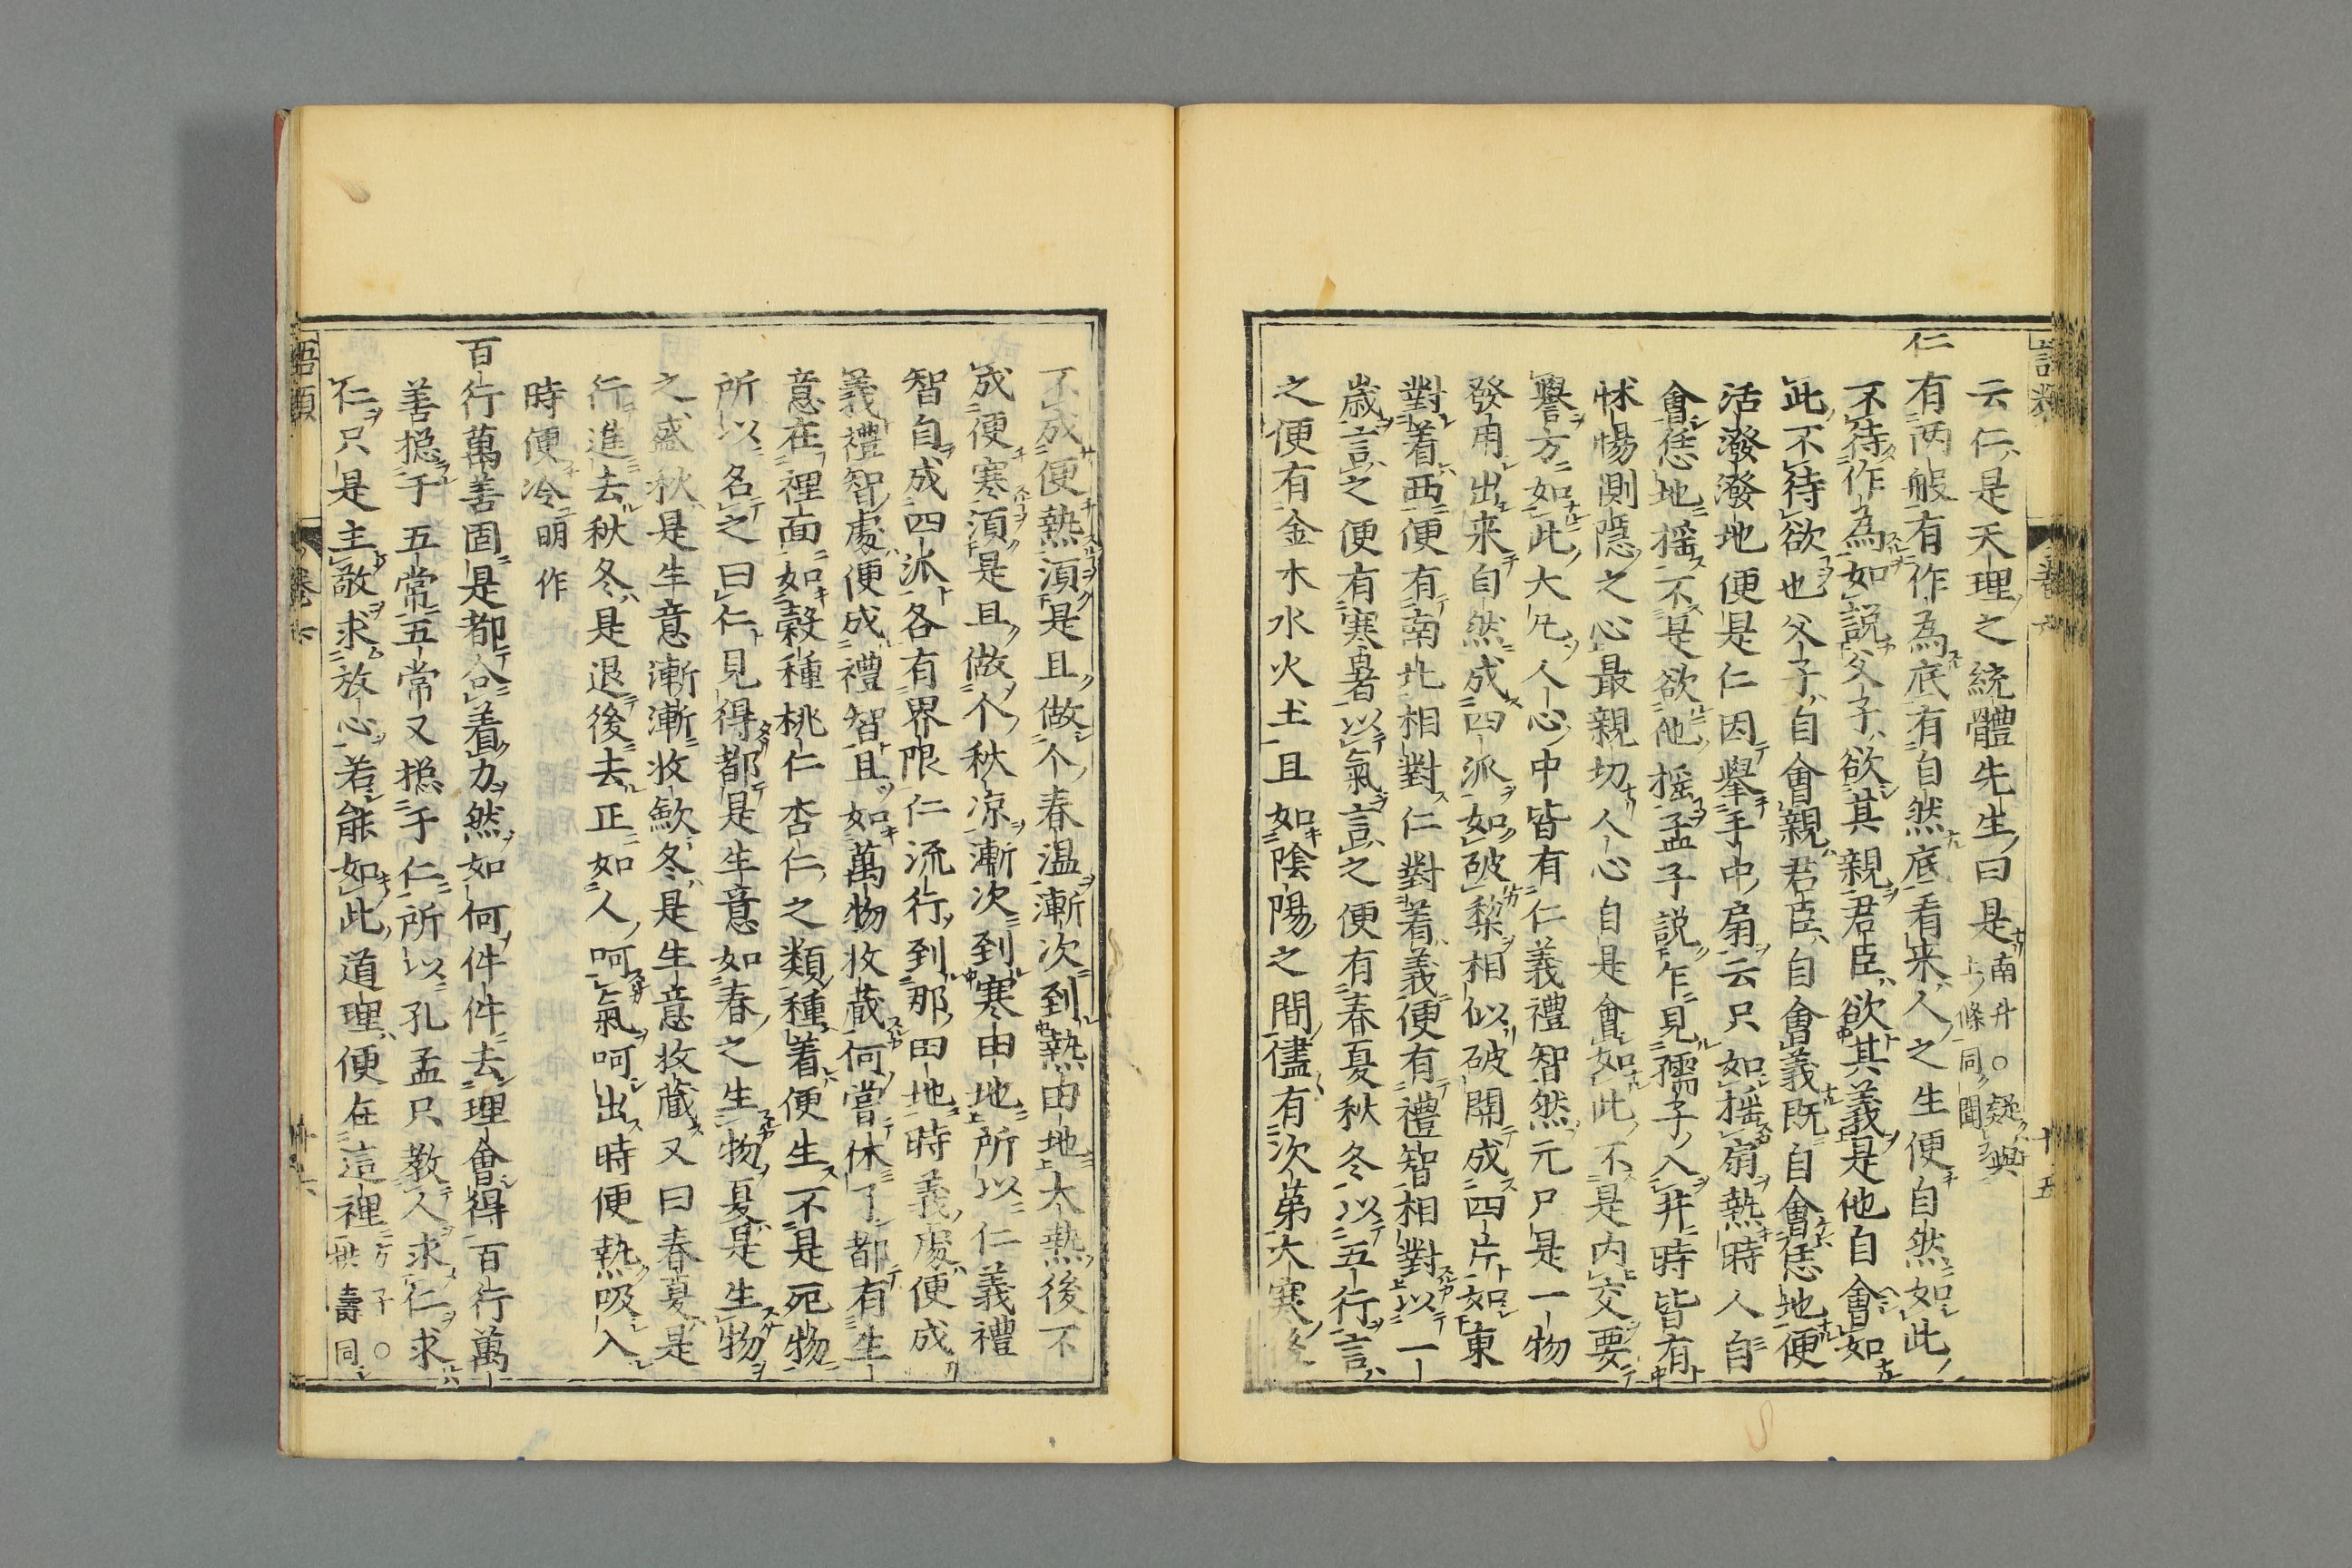 語類
卷六
十五
云仁是天理之統體先生曰是南升〇疑與
上條同聞
仁有兩般有作為底有自然底看来人之生便自然如此
不待作為如説父子欲其親君臣欲其義是他自會如
此不待欲也父子自會親君臣自會義既自會恁地便
活潑潑地便是仁因舉手中扇云只如搖扇熱時人自
會恁地搖不是欲他搖孟子説乍見孺子入井時皆有
怵惕惻隱之心最親切人心自是會如此不是内交要
譽方如此大凡人心中皆有仁義禮智然元只是一物
發用出来自然成四派如破梨相似破開成四片如東
對着西便有南北相對仁對着義便有禮智相對以一
歳言之便有寒暑以氣言之便有春夏秋冬以五行言
之便有金木水火土且如陰陽之間儘有次第大寒後
不成便熱須是且做个春温漸次到熱田地大熱後不
成便寒須是且做个秋凉漸次到寒田地所以仁義禮
智自成四派各有界限仁流行到那田地時義處便成
義禮智處便成禮智且如萬物收藏何嘗休了都有生
意在裡面如穀種桃仁杏仁之類種着便生不是死物
所以名之曰仁見得都是生意如春之生物夏是生物
之盛秋是生意漸漸收歛冬是生意收藏又曰春夏是
行進去秋冬是退後去正如人呵氣呵出時便熱吸入
時便冷明作
百行萬善固是都合着力然如何件件去理會得百行萬
善揔于五常五常又揔于仁所以孔孟只教人求仁求
仁只是主敬求放心若能如此道理便在這裡方子〇
拱壽同
語類
卷六
十六